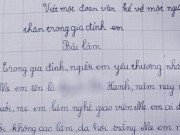 Viết một đoạn văn kể về một người
thân trong gia đình em
Bài làm
Trong gia đình, người em yêu thương nhất
Mẹ em tên là Hành, năm nay
tuổi, mẹ em làm nghề giáo viên Mẹ em có d
người không cao lắm, da hơi trắng Mẹ em